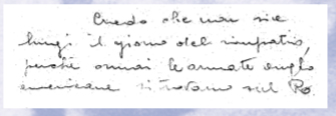 Credo che non sia
lungi il giorno del rimpatrio,
perché ormai le armate anglo
americane si trovano sul Po.